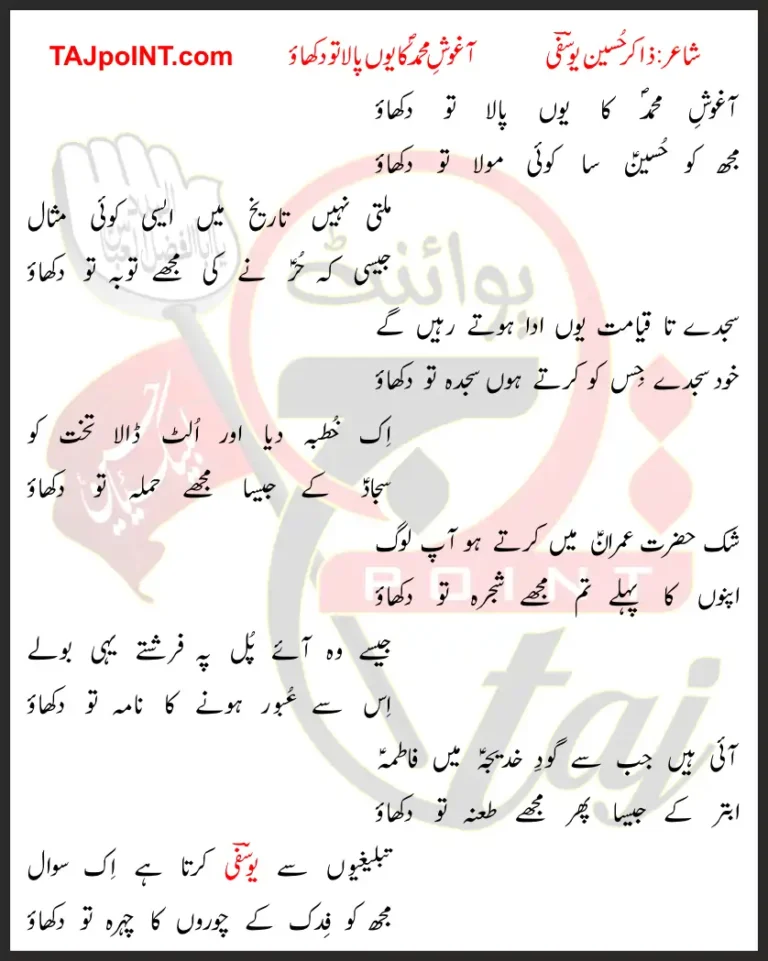 شاعر: ذاکر حُسین یوسفؔی آغوشِ محمدؐ کا یوں پالا تو دکھاؤ TAJpoINT.com
آغوشِ محمدؐ کا یوں پالا تو دکھاؤ
مجھ کو حُسینؑ سا کوئی مولا تو دکھاؤ
ملتی نہیں تاریخ میں ایسی کوئی مثال
جیسی کہ حُرؑ نے کی مجھے توبہ تو دکھاؤ
سجدے تا قیامت یوں ادا ہوتے رہیں گے
خود سجدے جِس کو کرتے ہوں سجدہ تو دکھاؤ
اِک خُطبہ دیا اور اُلٹ ڈالا تخت کو
سجادؑ کے جیسا مجھے حملہ تو دکھاؤ
شک حضرت عمرانؑ میں کرتے ہو آپ لوگ
اپنوں کا پہلے تم مجھے شجرہ تو دکھاؤ
جیسے وہ آئے پُل پہ فرشتے یہی بولے
اِس سے عُبور ہونے کا نامہ تو دکھاؤ
آئی ہیں جب سے گودِ خدیجہؑ میں فاطمہؑ
ابتر کے جیسا پھر مجھے طعنہ تو دکھاؤ
تبلیغیوں سے یوسفؔی کرتا ہے اِک سوال
مجھ کو فِدک کے چوروں کا چہرہ تو دکھاؤ
پوائنٹ
تاج
POINT
taj
لبیک یا حسین